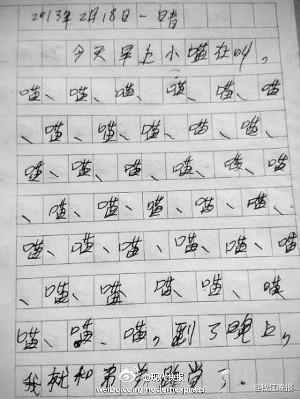 2013年2月18日 一 晴
今天早上小喵在叫，
喵、喵、喵、喵、喵、喵
、喵、喵、喵、喵、喵、
喵、喵、喵、喵、喵、喵
、喵、喵、喵、喵、喵、
喵、喵、喵、喵、喵、喵
、喵、喵、喵、喵、喵
喵、喵、喵，到了晚上，
我就和弟觉了.
@现代快报
weibo.com/modernexpress
@钱江晚报